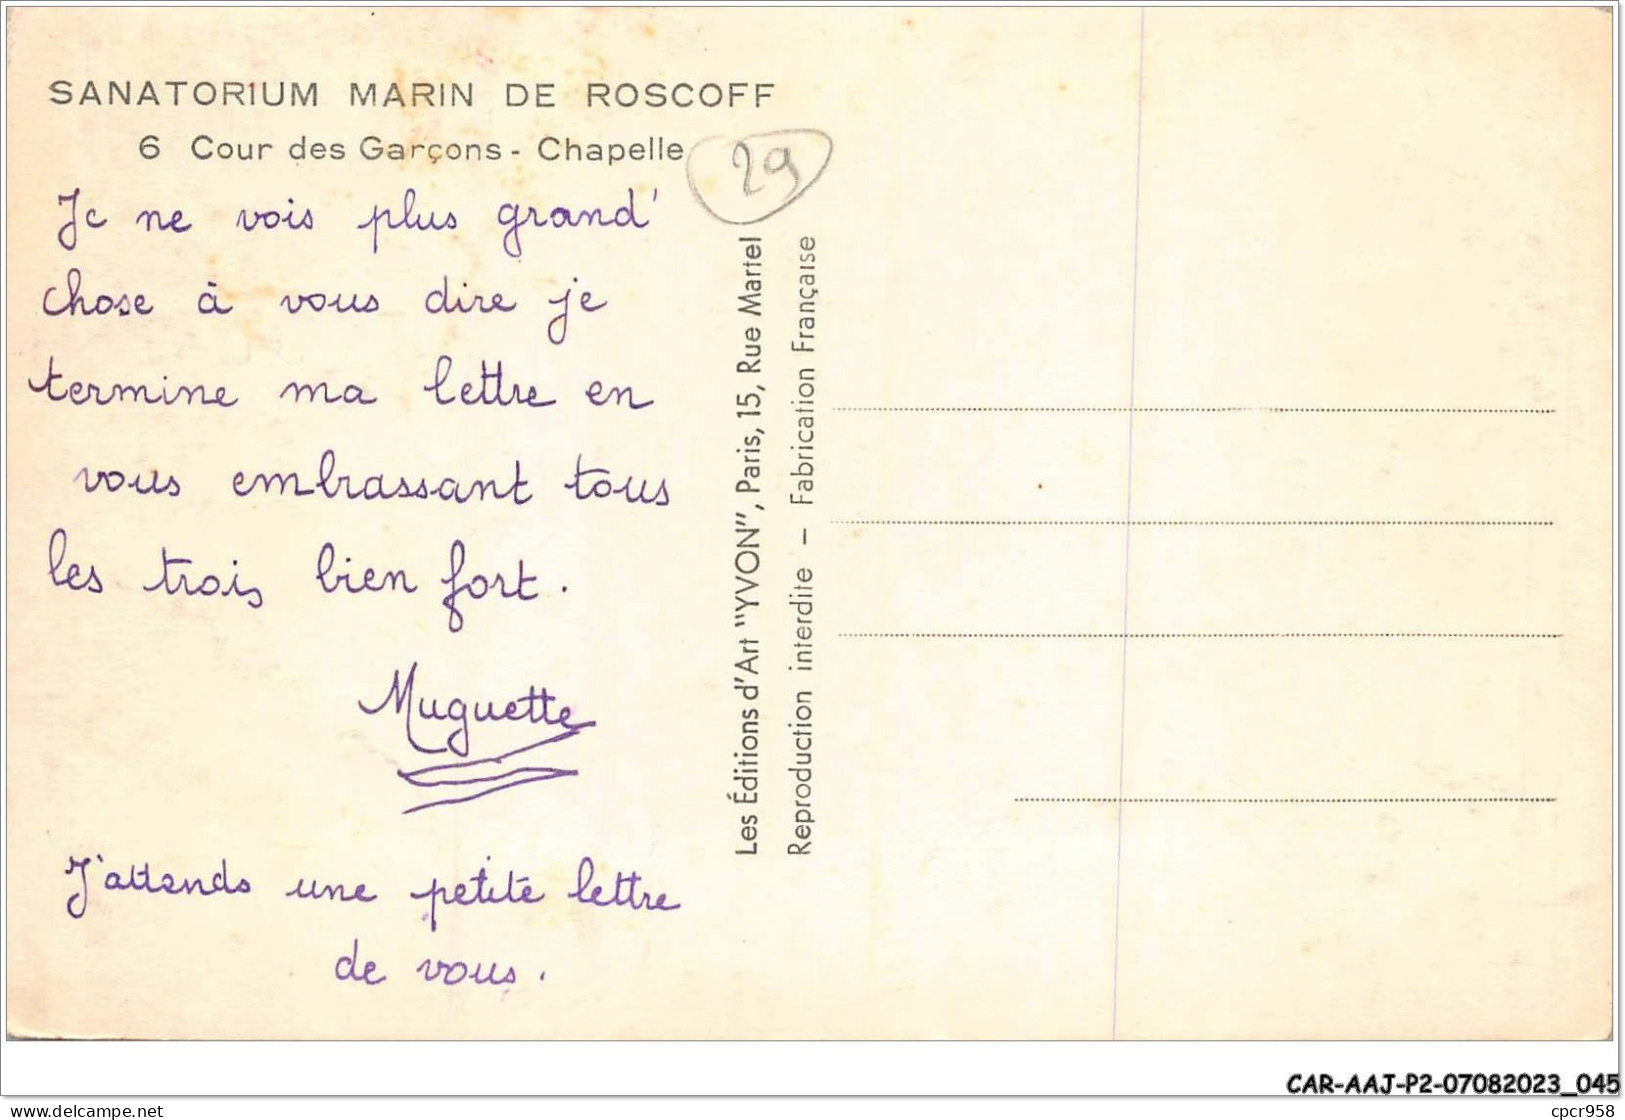 SANATORIUM MARIN DE ROSCOFF
6 Cour des Garçons - Chapelle
29
Je ne vois plus grand'
chose à vous dire je
termine ma lettre en
vous embrassant tous
les trois bien fort.
Muguette
J'attends une petite lettre
de vous.
Les Éditions d'Art "YVON", Paris, 15, Rue Martel
Reproduction interdite — Fabrication Française
CAR-AAJ-P2-07082023_045
https://www.delcampe.net
cpcr958